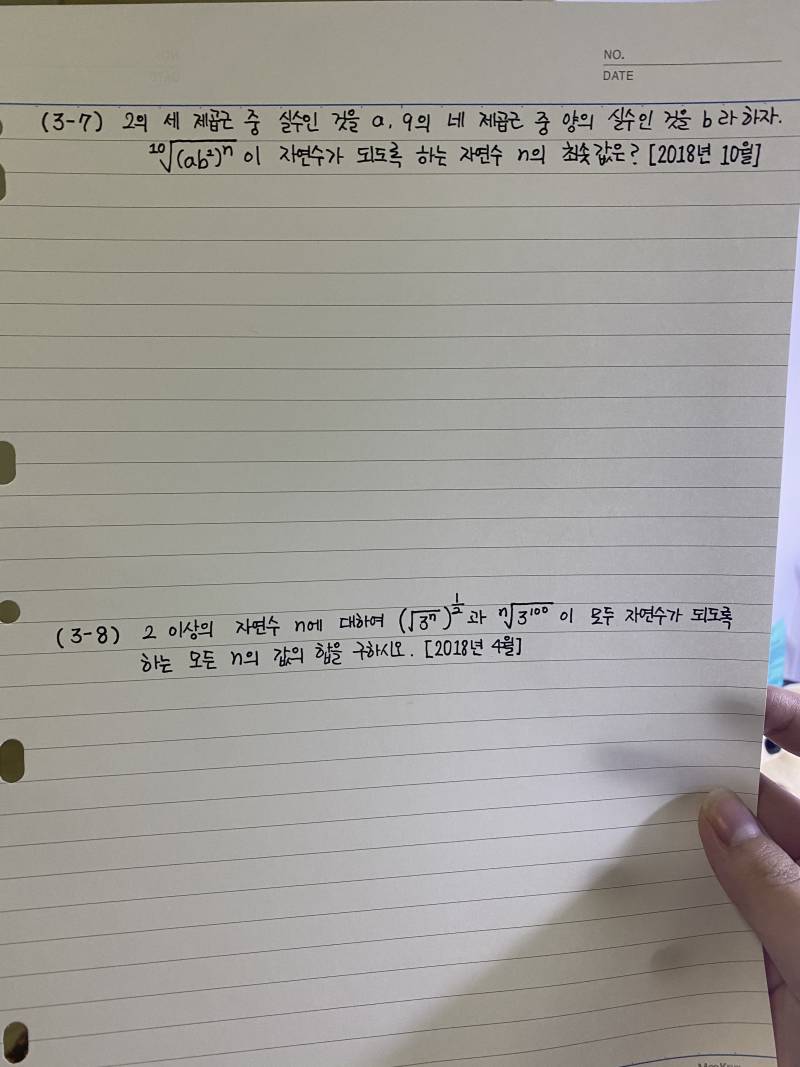 NO.
DATE
(3-7) 2의 세 제곱근 중 실수인 것을 a, 9의 네 제곱근 중 양의 실수인 것을 b라 하자.
¹⁰√(ab²)ⁿ 이 자연수가 되도록 하는 자연수 n의 최솟값은? [2018년 10월]
(3-8) 2 이상의 자연수 n에 대하여 (√3ⁿ)^(1/2) 과 ⁿ√3¹⁰⁰ 이 모두 자연수가 되도록
하는 모든 n의 값의 합을 구하시오. [2018년 4월]